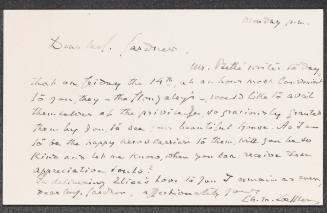 Monday p.m.
Dear Mrs. Gardner
Mr. writes to day,
that on Friday the 14th, at an hour most convenient
to you, they - the - would like to avail
themselves of the privilege so graciously granted
them by you, to see your beautiful house. As I am
to be the happy news carrier to them, will you be so
kind and let me know, when you can receive these
appreciative souls?
In delivering love to you I remain as ever,
dear Mrs. Gardner, affectionately yours
C. M. Loeffler